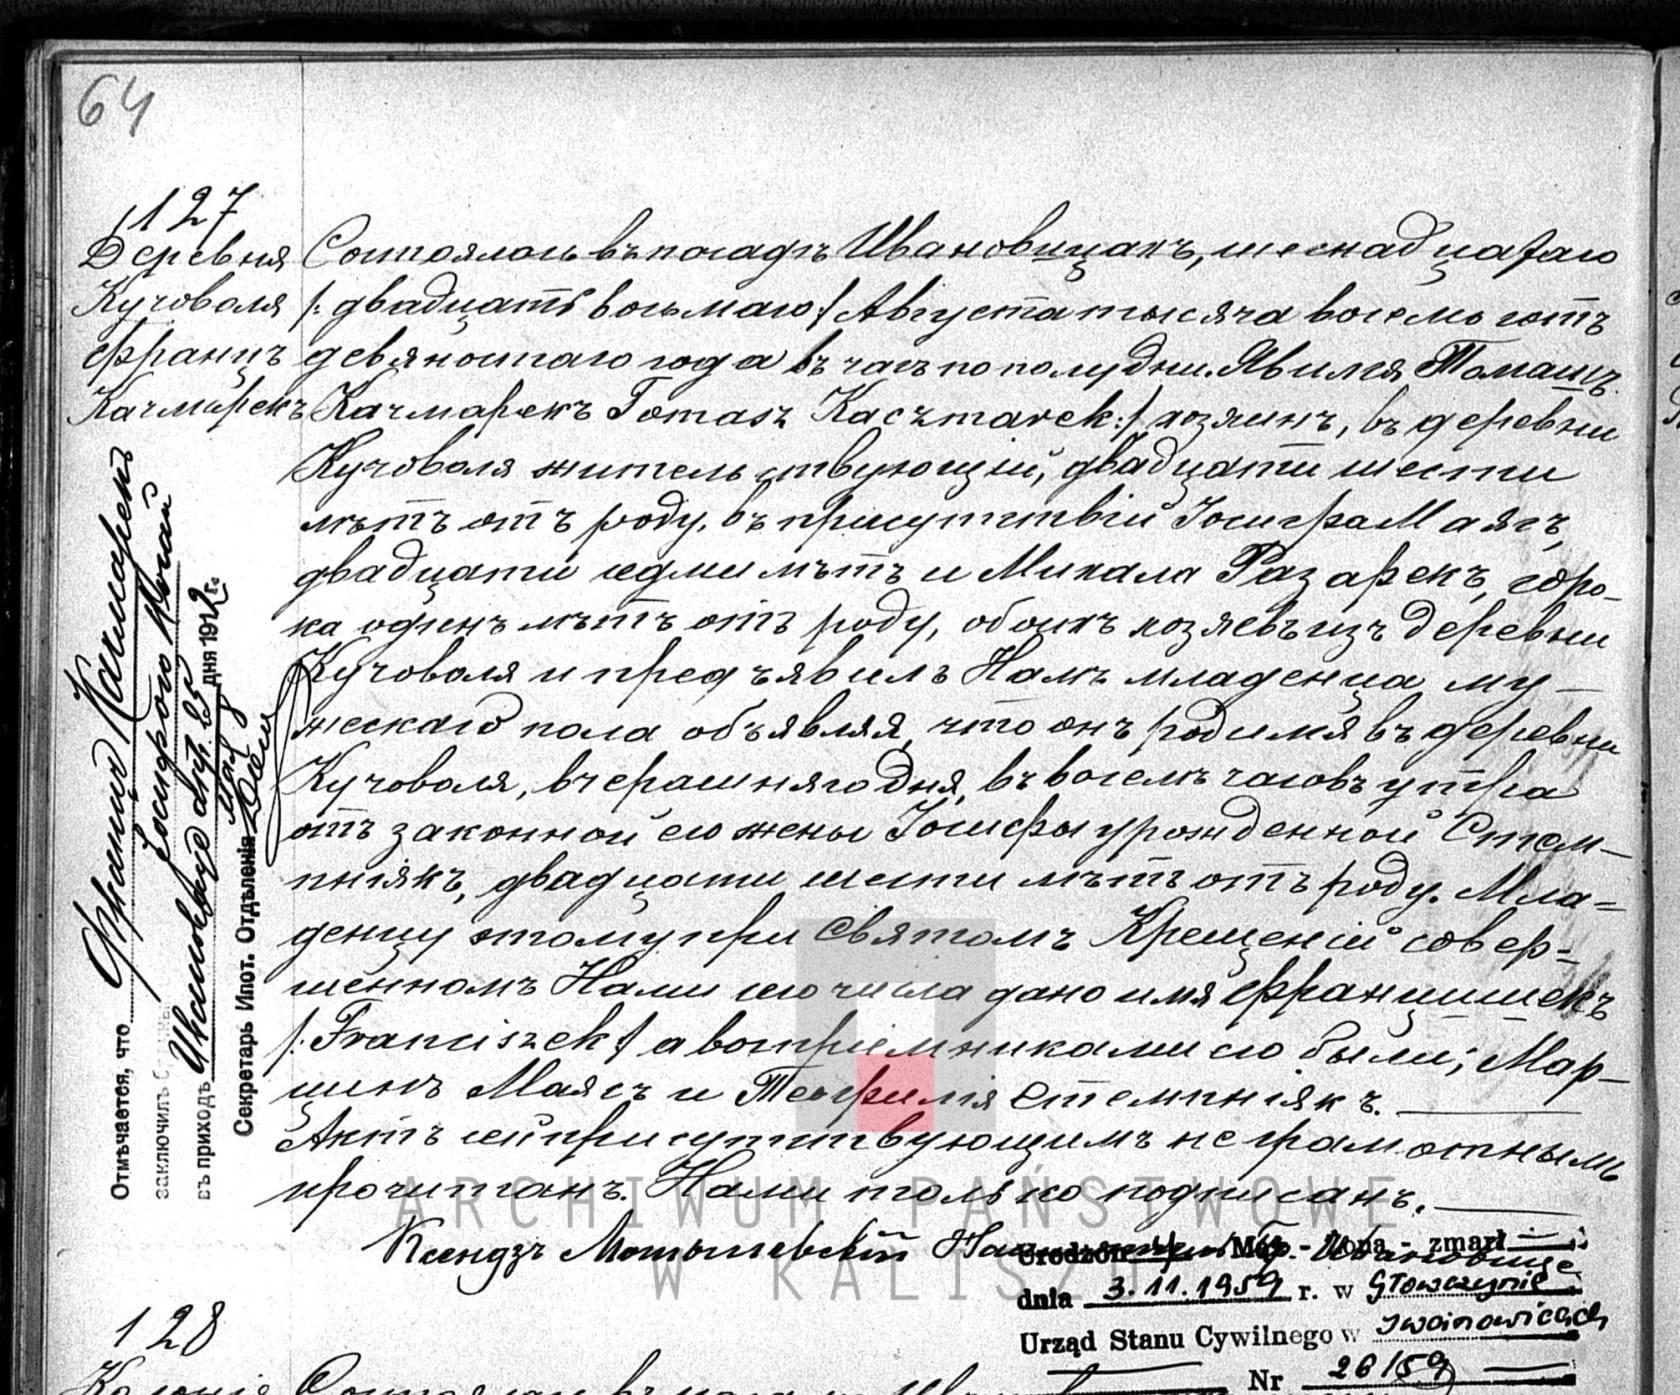 64
127
Деревня
Кучоволя
Францъ
Качмарекъ
Состоялось въ посадѣ Ивановицахъ, шеснадцатаго
/: двадцать восьмаго / Августа тысяча восемь сотъ
девяностаго года въ часъ по полудни. Явился Томашъ
Качмарекъ Tomasz Kaczmarek :/ хозяинъ, въ деревни
Кучоволя жительствующій, двадцати шести
лѣтъ отъ роду, въ присутствіи Іосифа Маясъ,
двадцати седми лѣтъ и Михала Разарекъ, соро-
ка одинъ лѣтъ отъ роду, обоихъ хозяевъ изъ деревни
Кучоволя и предъявилъ Намъ младенца му-
жескаго пола объявляя, что онъ родился въ деревни
Кучоволя, вчерашняго дня, въ восемь часовъ утра
отъ законной его жены Іосифы урожденной Стем-
пнякъ, двадцати шести лѣтъ отъ роду. Мла-
денцу этому при святомъ Крещеніи совер-
шенномъ Нами сего числа дано имя Францишекъ
/: Franciszek / а восприемниками его были; Мар-
цинъ Маясъ и Теофилія Стемпніякъ.
Актъ сей присутствующимъ неграмотнымъ
прочитанъ. Нами только подписанъ.
Ксендзъ
Отмѣчается, что Францъ Качмарекъ
заключилъ
въ приходѣ Ивановице дня 25
дня 1912 г.
Секретарь Ипот. Отдѣленія
ARCHIWUM PAŃSTWOWE
W KALISZU
Urodzon - Mąż - Żona - zmarł
dnia 3.11.1959 r. w Głowczynie
Urząd Stanu Cywilnego w Iwanowicach
Nr 26/59
128